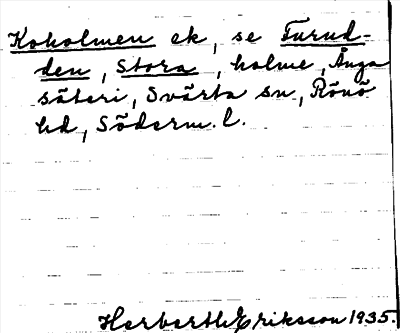 Koholmen ek, se Furud-
den, Stora, holme, Ånga
säteri, Svärta sn, Rönö
hd, Söderm. l.
Herberth Eriksson 1935.